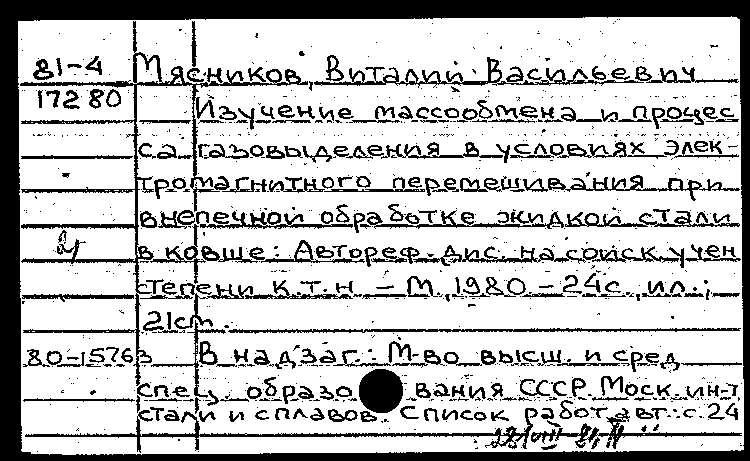 81-4 Мясников, Виталий Васильевич
17280 Изучение массообмена и процес
са газовыделения в условиях элек-
тромагнитного перемешивания при
внепечной обработке жидкой стали
в ковше: Автореф. дис. на соиск. учен
степени к.т.н. - М., 1980. - 24 с., ил.;
21 cm.
80-15763 В надзаг.: М-во высш. и сред
спец. образования СССР. Моск. ин-т
стали и сплавов. Список работ авт.: с. 24